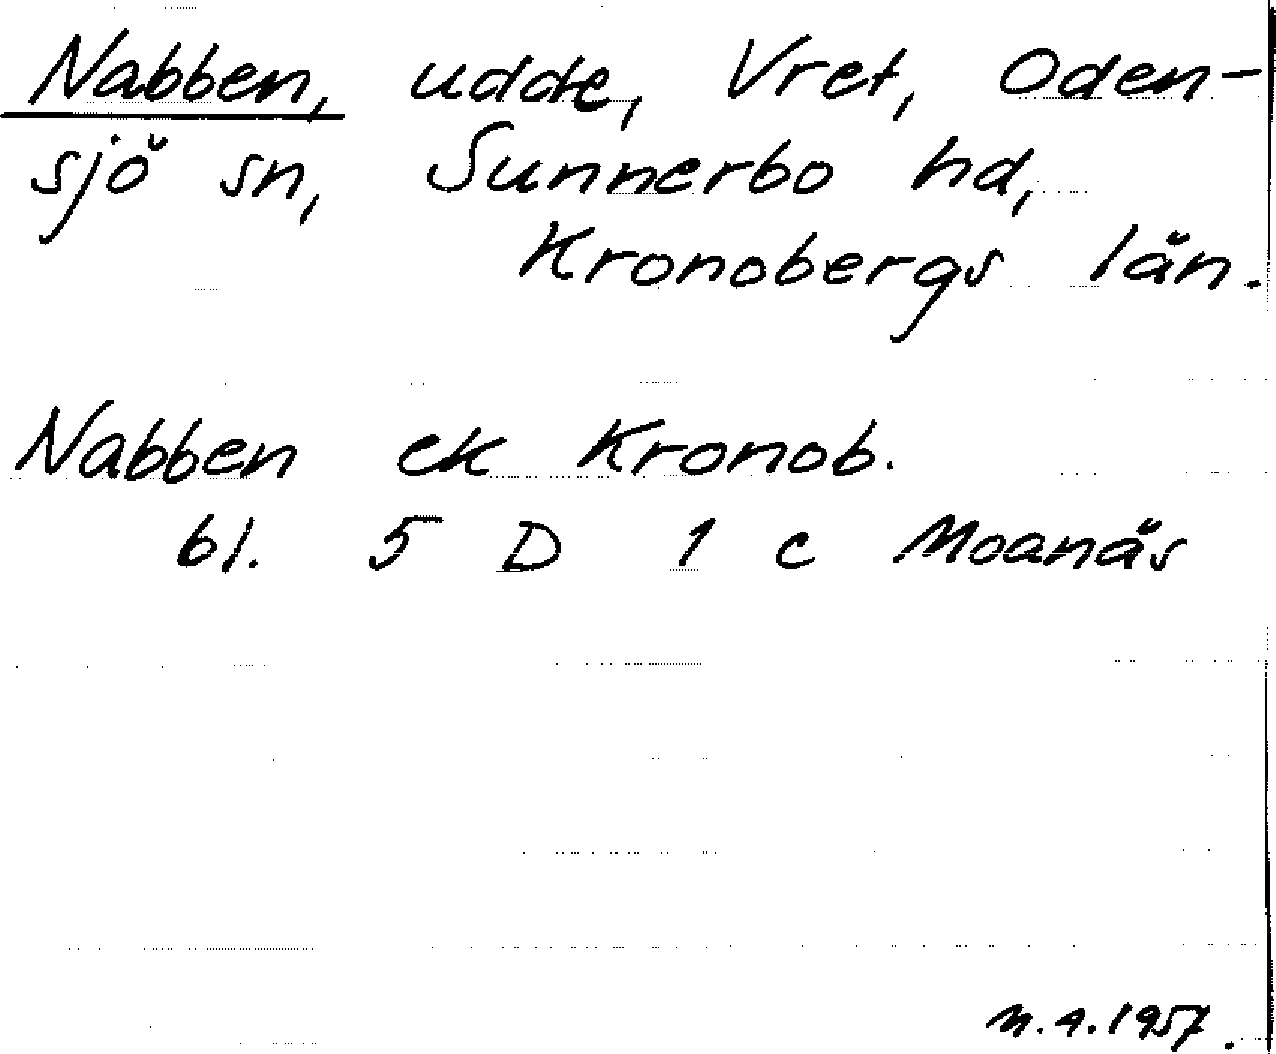 Nabben, udde, Vret, Oden-
sjö sn, Sunnerbo hd,
Kronobergs län.
Nabben ek Kronob.
bl. 5 D 1 c Moanäs
M.A.1957.